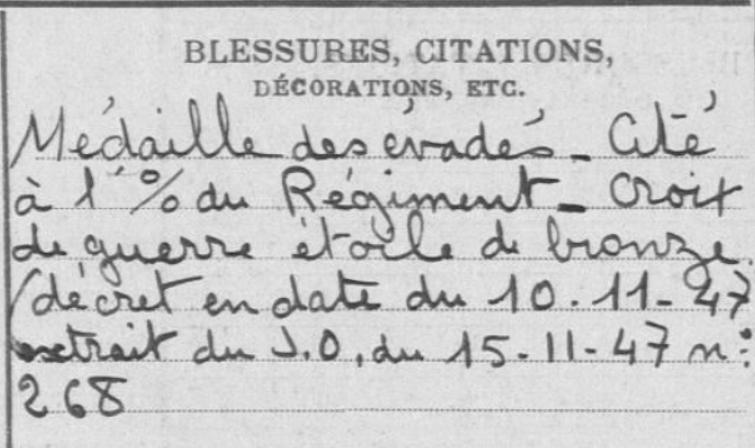 BLESSURES, CITATIONS,
DÉCORATIONS, ETC.
Médaille des évadés - Cité
à l'% du Régiment - Croix
de guerre étoile de bronze.
(décret en date du 10.11-47
extrait du J.O. du 15-11-47 n:
268